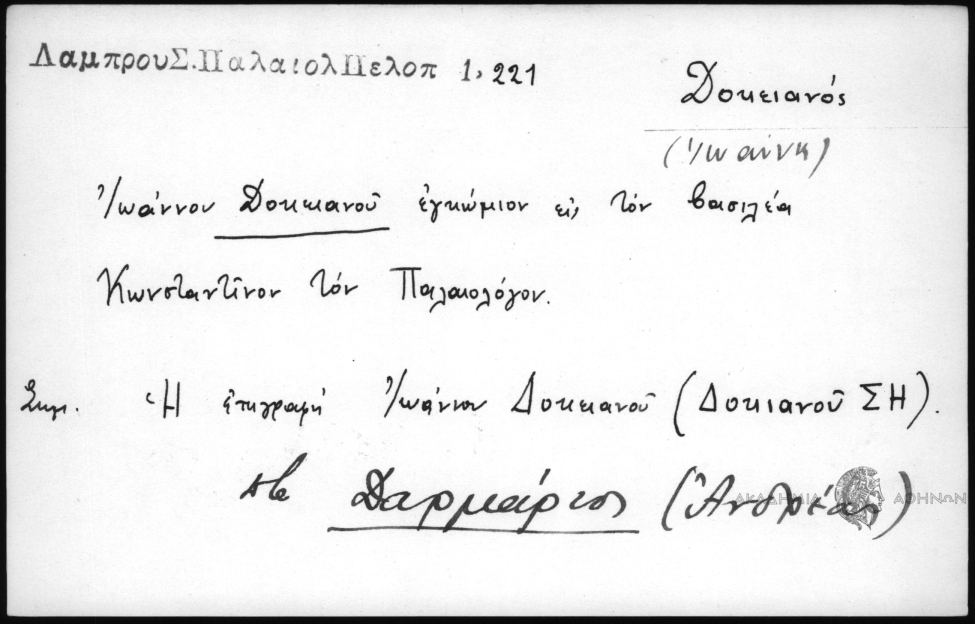 Λαμπρου Σ. Παλαιολ Πελοπ 1, 221
Δοκειανός
(Ἰωάννη)
Ἰωάννου Δοκειανοῦ ἐγκώμιον εἰς τὸν βασιλέα
Κωνσταντῖνον τὸν Παλαιολόγον.
Σημ. Ἡ ἐπιγραφὴ Ἰωάννου Δοκειανοῦ (Δοκιανοῦ ΣΗ).
Δαρμάριος (Ἀνδρέας)
ΑΚΑΔΗΜΙΑ ΑΘΗΝΩΝ